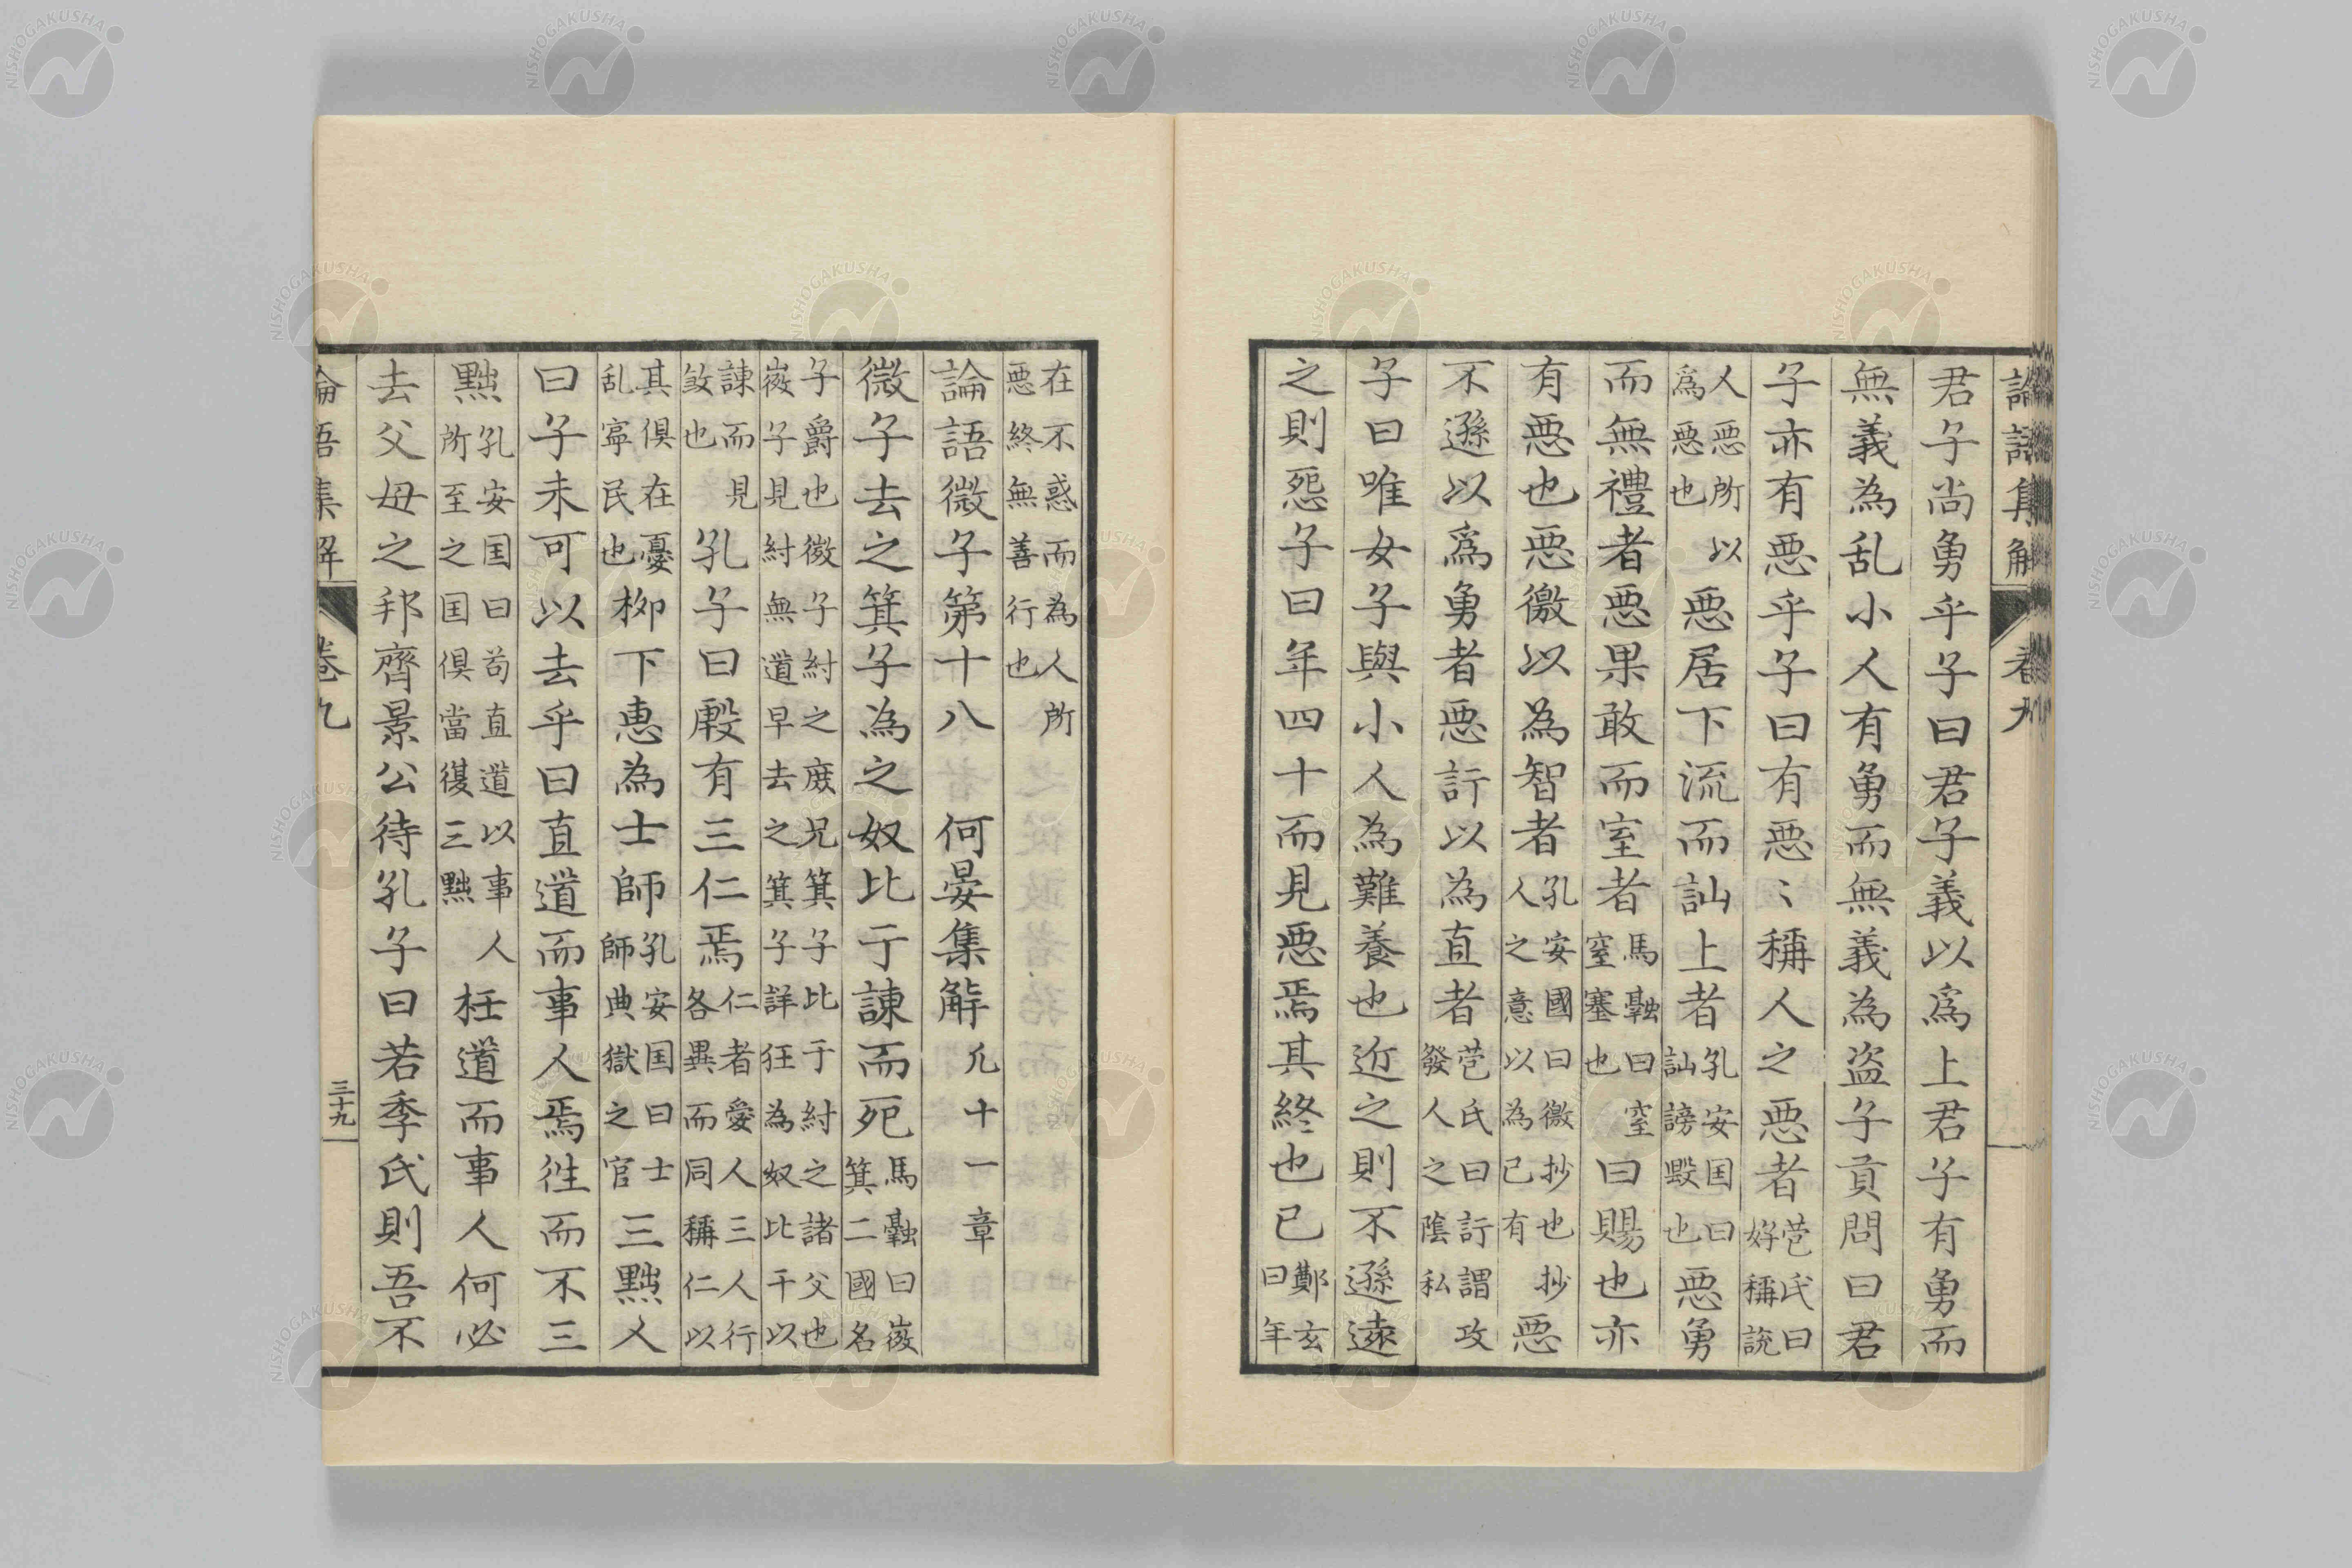 論語集解 卷九
君子尚勇乎子曰君子義以爲上君子有勇而
無義為乱小人有勇而無義為盗子貢問曰君
子亦有惡乎子曰有惡〻稱人之惡者苞氏曰好稱說
人惡所以爲惡也惡居下流而訕上者孔安囯曰訕謗毀也惡勇
而無禮者惡果敢而窒者馬融曰窒窒塞也曰賜也亦
有惡也惡徼以為智者孔安國曰徼抄也抄人之意以為己有惡
不遜以爲勇者惡訐以為直者苞氏曰訐謂攻發人之陰私
子曰唯女子與小人為難養也近之則不遜遠
之則怨子曰年四十而見惡焉其終也已鄭玄曰年
在不惑而為人所惡終無善行也
論語微子第十八 何晏集解 凢十一章
微子去之箕子為之奴比干諫而死馬融曰微箕二國名
子爵也微子紂之庻兄箕子比干紂之諸父也微子見紂無道早去之箕子詳狂為奴比干以
諫而見敓也孔子曰殷有三仁焉仁者愛人三人行各異而同稱仁以
其俱在憂乱寧民也柳下惠為士師孔安囯曰士師典獄之官三黜人
曰子未可以去乎曰直道而事人焉徃而不三
黜孔安囯曰苟直道以事人所至之囯俱當復三黜枉道而事人何必
去父母之邦齊景公待孔子曰若季氏則吾不
論語集解 卷九 三十九
NISHOGAKUSHA